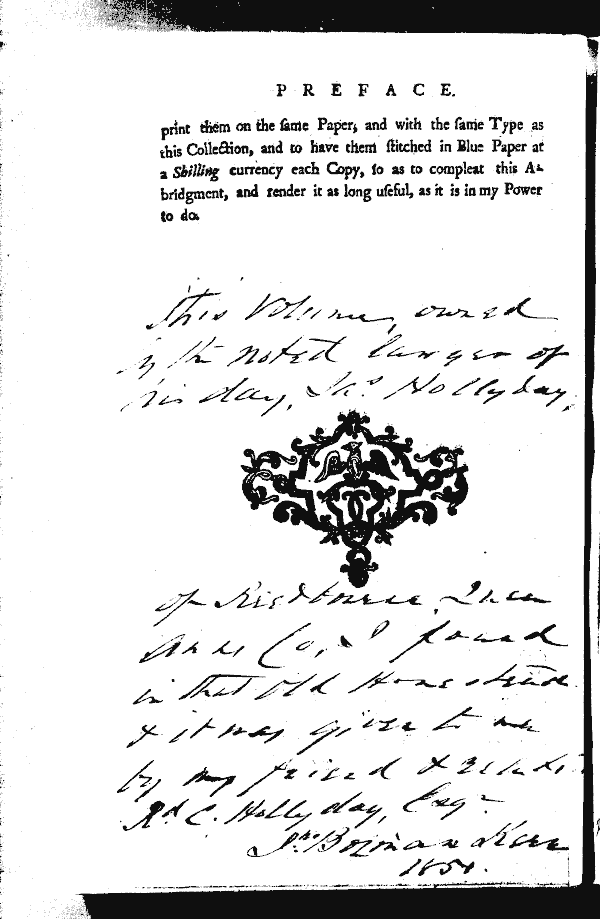 PREFACE.
print them on the same Paper, and with the same Type as
this Collection, and to have them stitched in Blue Paper at
a Shilling currency each Copy, so as to compleat this A-
bridgment, and render it as long useful, as it is in my Power
to do.
This Volume, owned
by the noted lawyer of
his day, Jas Hollyday,
of Readbourne, Queen
Anns Co, I found
in that Old Homestead
& it was given to me
by my friend &
Rd C. Hollyday, Esqr
Jno Bozman Kerr